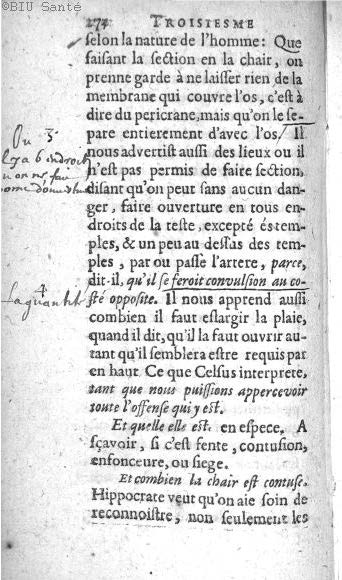 ©BIU Santé
274 TROISIESME
selon la nature de l'homme: Que
faisant la section en la chair, on
prenne garde à ne laisser rien de la
membrane qui couvre l'os, c'est à
dire du pericrane, mais qu'on le se-
pare entierement d'avec l'os. Il
nous advertist aussi des lieux ou il
n'est pas permis de faire section,
disant qu'on peut sans aucun dan-
ger, faire ouverture en tous en-
droits de la teste, excepté és tem-
ples, & un peu au dessus des tem-
ples, par ou passe l'artere, parce,
dit-il, qu'il se feroit convulsion au co-
sté opposite. Il nous apprend aussi
combien il faut eslargir la plaie,
quand il dit, qu'il la faut ouvrir au-
tant qu'il semblera estre requis par
en haut Ce que Celsus interprete,
tant que nous puissions appercevoir
toute l'offense qui y est.
Et quelle elle est. en espece. A
sçavoir, si c'est fente, contusion,
enfonceure, ou siege.
Et combien la chair est contuse.
Hippocrate veut qu'on aie soin de
reconnoistre, non seulement les
3
4
la quantité